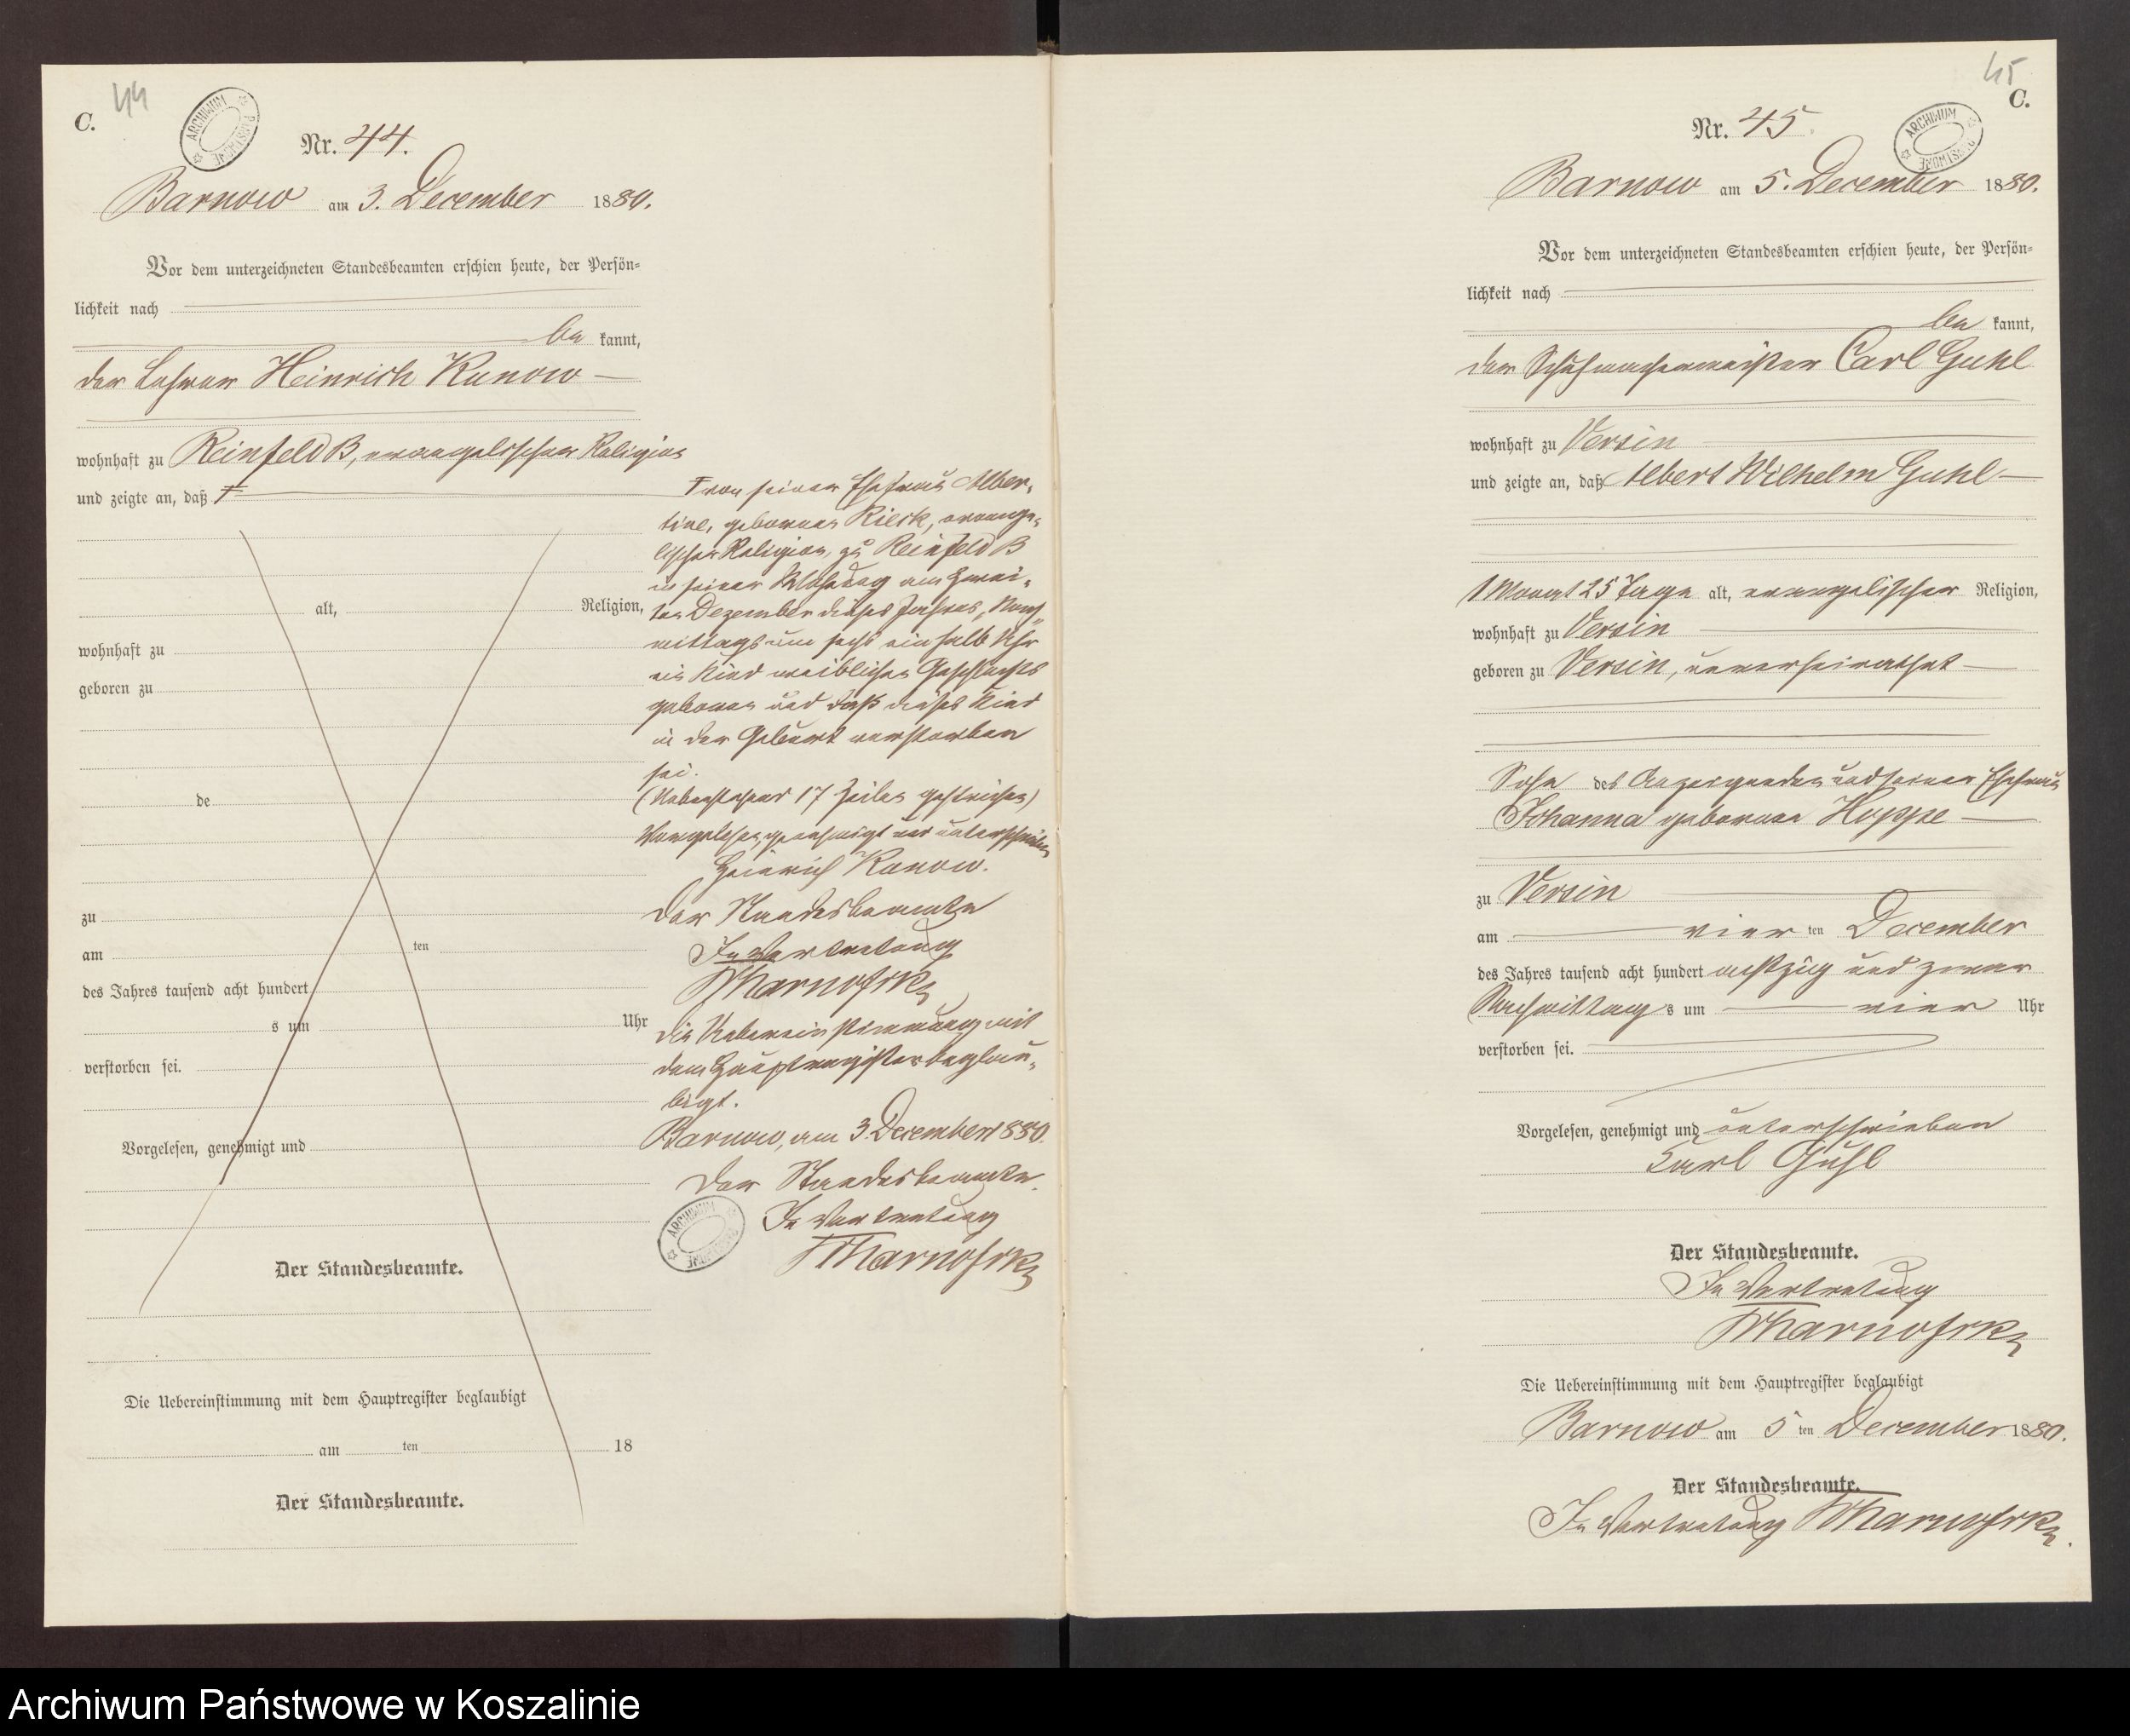 44
C.
ARCHIWUM PAŃSTWOWE
Nr. 44.
Barnow am 3. December 1880.
Vor dem unterzeichneten Standesbeamten erschien heute, der Persön-
lichkeit nach
be kannt,
der Lehrer Heinrich Kunow
wohnhaft zu Reinfeld B, evangelischer Religion
und zeigte an, daß
alt, Religion,
wohnhaft zu
geboren zu
de
zu
am ten
des Jahres tausend acht hundert
s um Uhr
verstorben sei.
Vorgelesen, genehmigt und
Der Standesbeamte.
Die Uebereinstimmung mit dem Hauptregister beglaubigt
am ten 18
Der Standesbeamte.
von seiner Ehefrau Alber-
tine, geborenen Rieck, evange-
lischer Religion, zu Reinfeld B
in seiner Wohnung am zwei-
ten Dezember dieses Jahres, Nach-
mittags um sechs ein halb Uhr
ein Kind weiblichen Geschlechts
geboren und daß dieses Kind
in der Geburt verstorben
sei.
(Vorstehend 17 Zeilen gestrichen)
Vorgelesen, genehmigt und unterschrieben
Heinrich Kunow.
Der Standesbeamte
In Vertretung
Die Uebereinstimmung mit
dem Hauptregister beglau-
bigt.
Barnow, am 3. December 1880.
Der Standesbeamte.
In Vertretung
ARCHIWUM PAŃSTWOWE
45
C.
ARCHIWUM PAŃSTWOWE
Nr. 45.
Barnow am 5. December 1880.
Vor dem unterzeichneten Standesbeamten erschien heute, der Persön-
lichkeit nach
be kannt,
der Schuhmachermeister Carl Guhl
wohnhaft zu Versin
und zeigte an, daß Albert Wilhelm Guhl
1 Monat 25 Tage alt, evangelischer Religion,
wohnhaft zu Versin
geboren zu Versin, unverheirathet
Sohn des Anzeigenden und seiner Ehefrau
Johanna geborenen Hoppe
zu Versin
am vier ten December
des Jahres tausend acht hundert achtzig und zwar
Nachmittag s um vier Uhr
verstorben sei.
Vorgelesen, genehmigt und unterschrieben
Carl Guhl
Der Standesbeamte.
In Vertretung
Die Uebereinstimmung mit dem Hauptregister beglaubigt
Barnow am 5 ten December 1880.
Der Standesbeamte.
In Vertretung
Archiwum Państwowe w Koszalinie